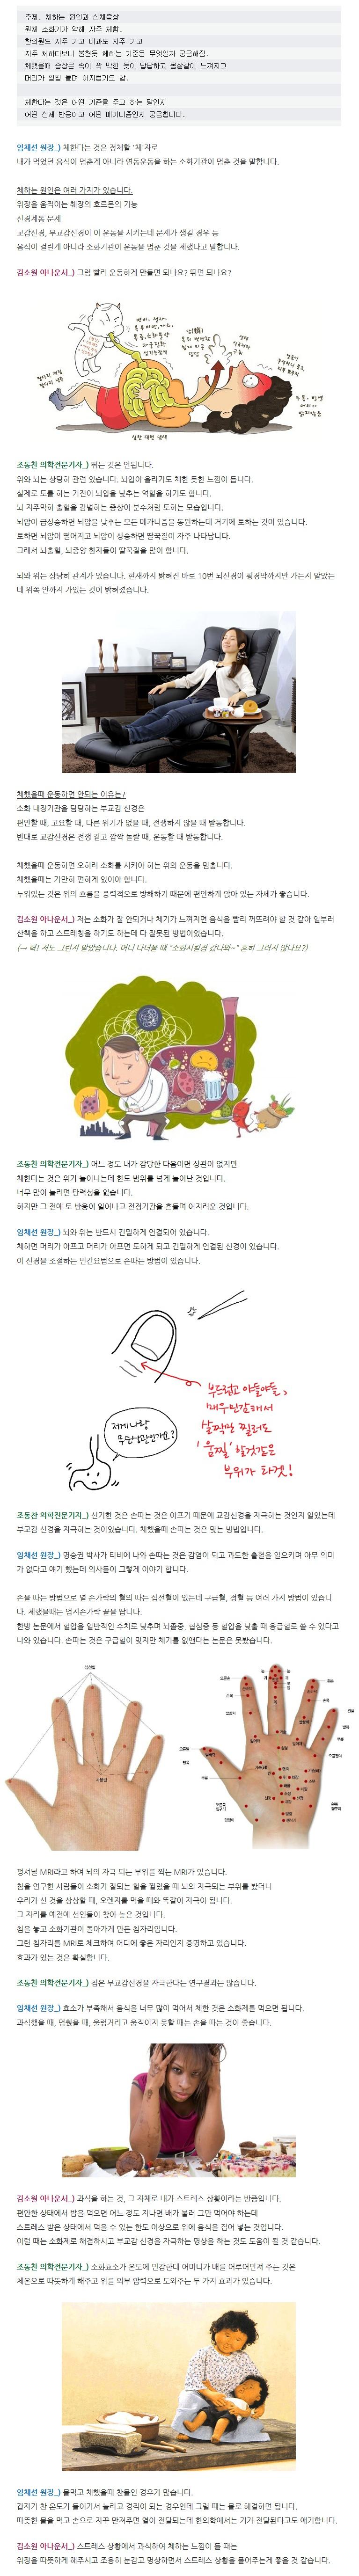 주제. 체하는 원인과 신체증상
원체 소화기가 약해 자주 체함.
한의원도 자주 가고 내과도 자주 가고
자주 체하다보니 불현듯 체하는 기준은 무엇일까 궁금해짐.
체했을때 증상은 속이 꽉 막힌 듯이 답답하고 몸살같이 느껴지고
머리가 핑핑 돌며 어지럽기도 함.
체한다는 것은 어떤 기준을 두고 하는 말인지
어떤 신체 반응이고 어떤 메카니즘인지 궁금합니다.
임재선 원장_) 체한다는 것은 정체할 '체'자로
내가 먹었던 음식이 멈춘게 아니라 연동운동을 하는 소화기관이 멈춘 것을 말합니다.
체하는 원인은 여러 가지가 있습니다.
위장을 움직이는 췌장의 호르몬의 기능
신경계통 문제
교감신경, 부교감신경이 이 운동을 시키는데 문제가 생길 경우 등
음식이 걸린게 아니라 소화기관이 운동을 멈춘 것을 체했다고 말합니다.
김소원 아나운서_) 그럼 빨리 운동하게 만들면 되나요? 뛰면 되나요?
조동찬 의학전문기자_) 뛰는 것은 안됩니다.
위와 뇌는 상당히 관련 있습니다. 뇌압이 올라가도 체한 듯한 느낌이 듭니다.
실제로 토를 하는 기전이 뇌압을 낮추는 역할을 하기도 합니다.
뇌 지주막하 출혈을 감별하는 증상이 분수처럼 토하는 모습입니다.
뇌압이 급상승하면 뇌압을 낮추는 모든 메카니즘을 동원하는데 거기에 토하는 것이 있습니다.
토하면 뇌압이 떨어지고 뇌압이 상승하면 딸꾹질이 자주 나타납니다.
그래서 뇌출혈, 뇌종양 환자들이 딸꾹질을 많이 합니다.
뇌와 위는 상당히 관계가 있습니다. 현재까지 밝혀진 바로 10번 뇌신경이 횡경막까지만 가는지 알았는
데 위쪽 안까지 가있는 것이 밝혀졌습니다.
체했을때 운동하면 안되는 이유는?
소화 내장기관을 담당하는 부교감 신경은
편안할 때, 고요할 때, 다른 위기가 없을 때, 전쟁하지 않을 때 발동합니다.
반대로 교감신경은 전쟁 같고 깜짝 놀랄 때, 운동할 때 발동합니다.
체했을때 운동하면 오히려 소화를 시켜야 하는 위의 운동을 멈춥니다.
체했을때는 가만히 편하게 있어야 합니다.
누워있는 것은 위의 흐름을 중력적으로 방해하기 때문에 편안하게 앉아 있는 자세가 좋습니다.
김소원 아나운서_) 저는 소화가 잘 안되거나 체기가 느껴지면 음식을 빨리 꺼뜨려야 할 것 같아 일부러
산책을 하고 스트레칭을 하기도 하는데 다 잘못된 방법이었습니다.
(→ 헉! 저도 그런지 알았습니다. 어디 다녀올 때 "소화시킬겸 갔다와~" 흔히 그러지 않나요?)
조동찬 의학전문기자_) 어느 정도 내가 감당한 다음이면 상관이 없지만
체한다는 것은 위가 늘어나는데 한도 범위를 넘게 늘어난 것입니다.
너무 많이 늘리면 탄력성을 잃습니다.
하지만 그 전에 토 반응이 일어나고 전정기관을 흔들며 어지러운 것입니다.
임재선 원장_) 뇌와 위는 반드시 긴밀하게 연결되어 있습니다.
체하면 머리가 아프고 머리가 아프면 토하게 되고 긴밀하게 연결된 신경이 있습니다.
이 신경을 조절하는 민간요법으로 손따는 방법이 있습니다.
부드럽고 야들야들,
매우민감해서
살짝만 찔러도
'움찔' 할것같은
부위가 타겟!
저게나랑
무슨상관인가요?
조동찬 의학전문기자_) 신기한 것은 손따는 것은 아프기 때문에 교감신경을 자극하는 것인지 알았는데
부교감 신경을 자극하는 것이었습니다. 체했을때 손따는 것은 맞는 방법입니다.
임재선 원장_) 명승권 박사가 티비에 나와 손따는 것은 감염이 되고 과도한 출혈을 일으키며 아무 의미
가 없다고 얘기 했는데 의사들이 그렇게 이야기 합니다.
손을 따는 방법으로 열 손가락의 혈의 따는 십선혈이 있는데 구급혈, 정혈 등 여러 가지 방법이 있습니
다. 체했을때는 엄지손가락 끝을 땁니다.
한방 논문에서 혈압을 일반적인 수치로 낮추며 뇌졸중, 협심증 등 혈압을 낮출 때 응급혈로 쓸 수 있다고
나와 있습니다. 손따는 것은 구급혈이 맞지만 체기를 없앤다는 논문은 못봤습니다.
십선혈
사봉혈
펑셔널 MRI라고 하여 뇌의 자극 되는 부위를 찍는 MRI가 있습니다.
침을 연구한 사람들이 소화가 잘되는 혈을 찔렀을 때 뇌의 자극되는 부위를 봤더니
우리가 신 것을 상상할 때, 오렌지를 먹을 때와 똑같이 자극이 됩니다.
그 자리를 예전에 선인들이 찾아 놓은 것입니다.
침을 놓고 소화기관이 돌아가게 만든 침자리입니다.
그런 침자리를 MRI로 체크하여 어디에 좋은 자리인지 증명하고 있습니다.
효과가 있는 것은 확실합니다.
조동찬 의학전문기자_) 침은 부교감신경을 자극한다는 연구결과는 많습니다.
임재선 원장_) 효소가 부족해서 음식을 너무 많이 먹어서 체한 것은 소화제를 먹으면 됩니다.
과식했을 때, 멈췄을 때, 울렁거리고 움직이지 못할 때는 손을 따는 것이 좋습니다.
김소원 아나운서_) 과식을 하는 것, 그 자체로 내가 스트레스 상황이라는 반증입니다.
편안한 상태에서 밥을 먹으면 어느 정도 지나면 배가 불러 그만 먹어야 하는데
스트레스 받은 상태에서 먹을 수 있는 한도 이상으로 위에 음식을 집어 넣는 것입니다.
이럴 때는 소화제로 해결하시고 부교감 신경을 자극하는 명상을 하는 것도 도움이 될 것 같습니다.
조동찬 의학전문기자_) 소화효소가 온도에 민감한데 어머니가 배를 어루어만져 주는 것은
체온으로 따뜻하게 해주고 위를 외부 압력으로 도와주는 두 가지 효과가 있습니다.
임재선 원장_) 물먹고 체했을때 찬물인 경우가 많습니다.
갑자기 찬 온도가 들어가서 놀라고 경직이 되는 경우인데 그럴 때는 물로 해결하면 됩니다.
따뜻한 물을 먹고 손으로 자꾸 만져주면 열이 전달되는데 한의학에서는 기가 전달된다고도 얘기합니다.
김소원 아나운서_) 스트레스 상황에서 과식하여 체하는 느낌이 들 때는
위장을 따뜻하게 해주시고 조용히 눈감고 명상하면서 스트레스 상황을 풀어주는게 좋을 것 같습니다.